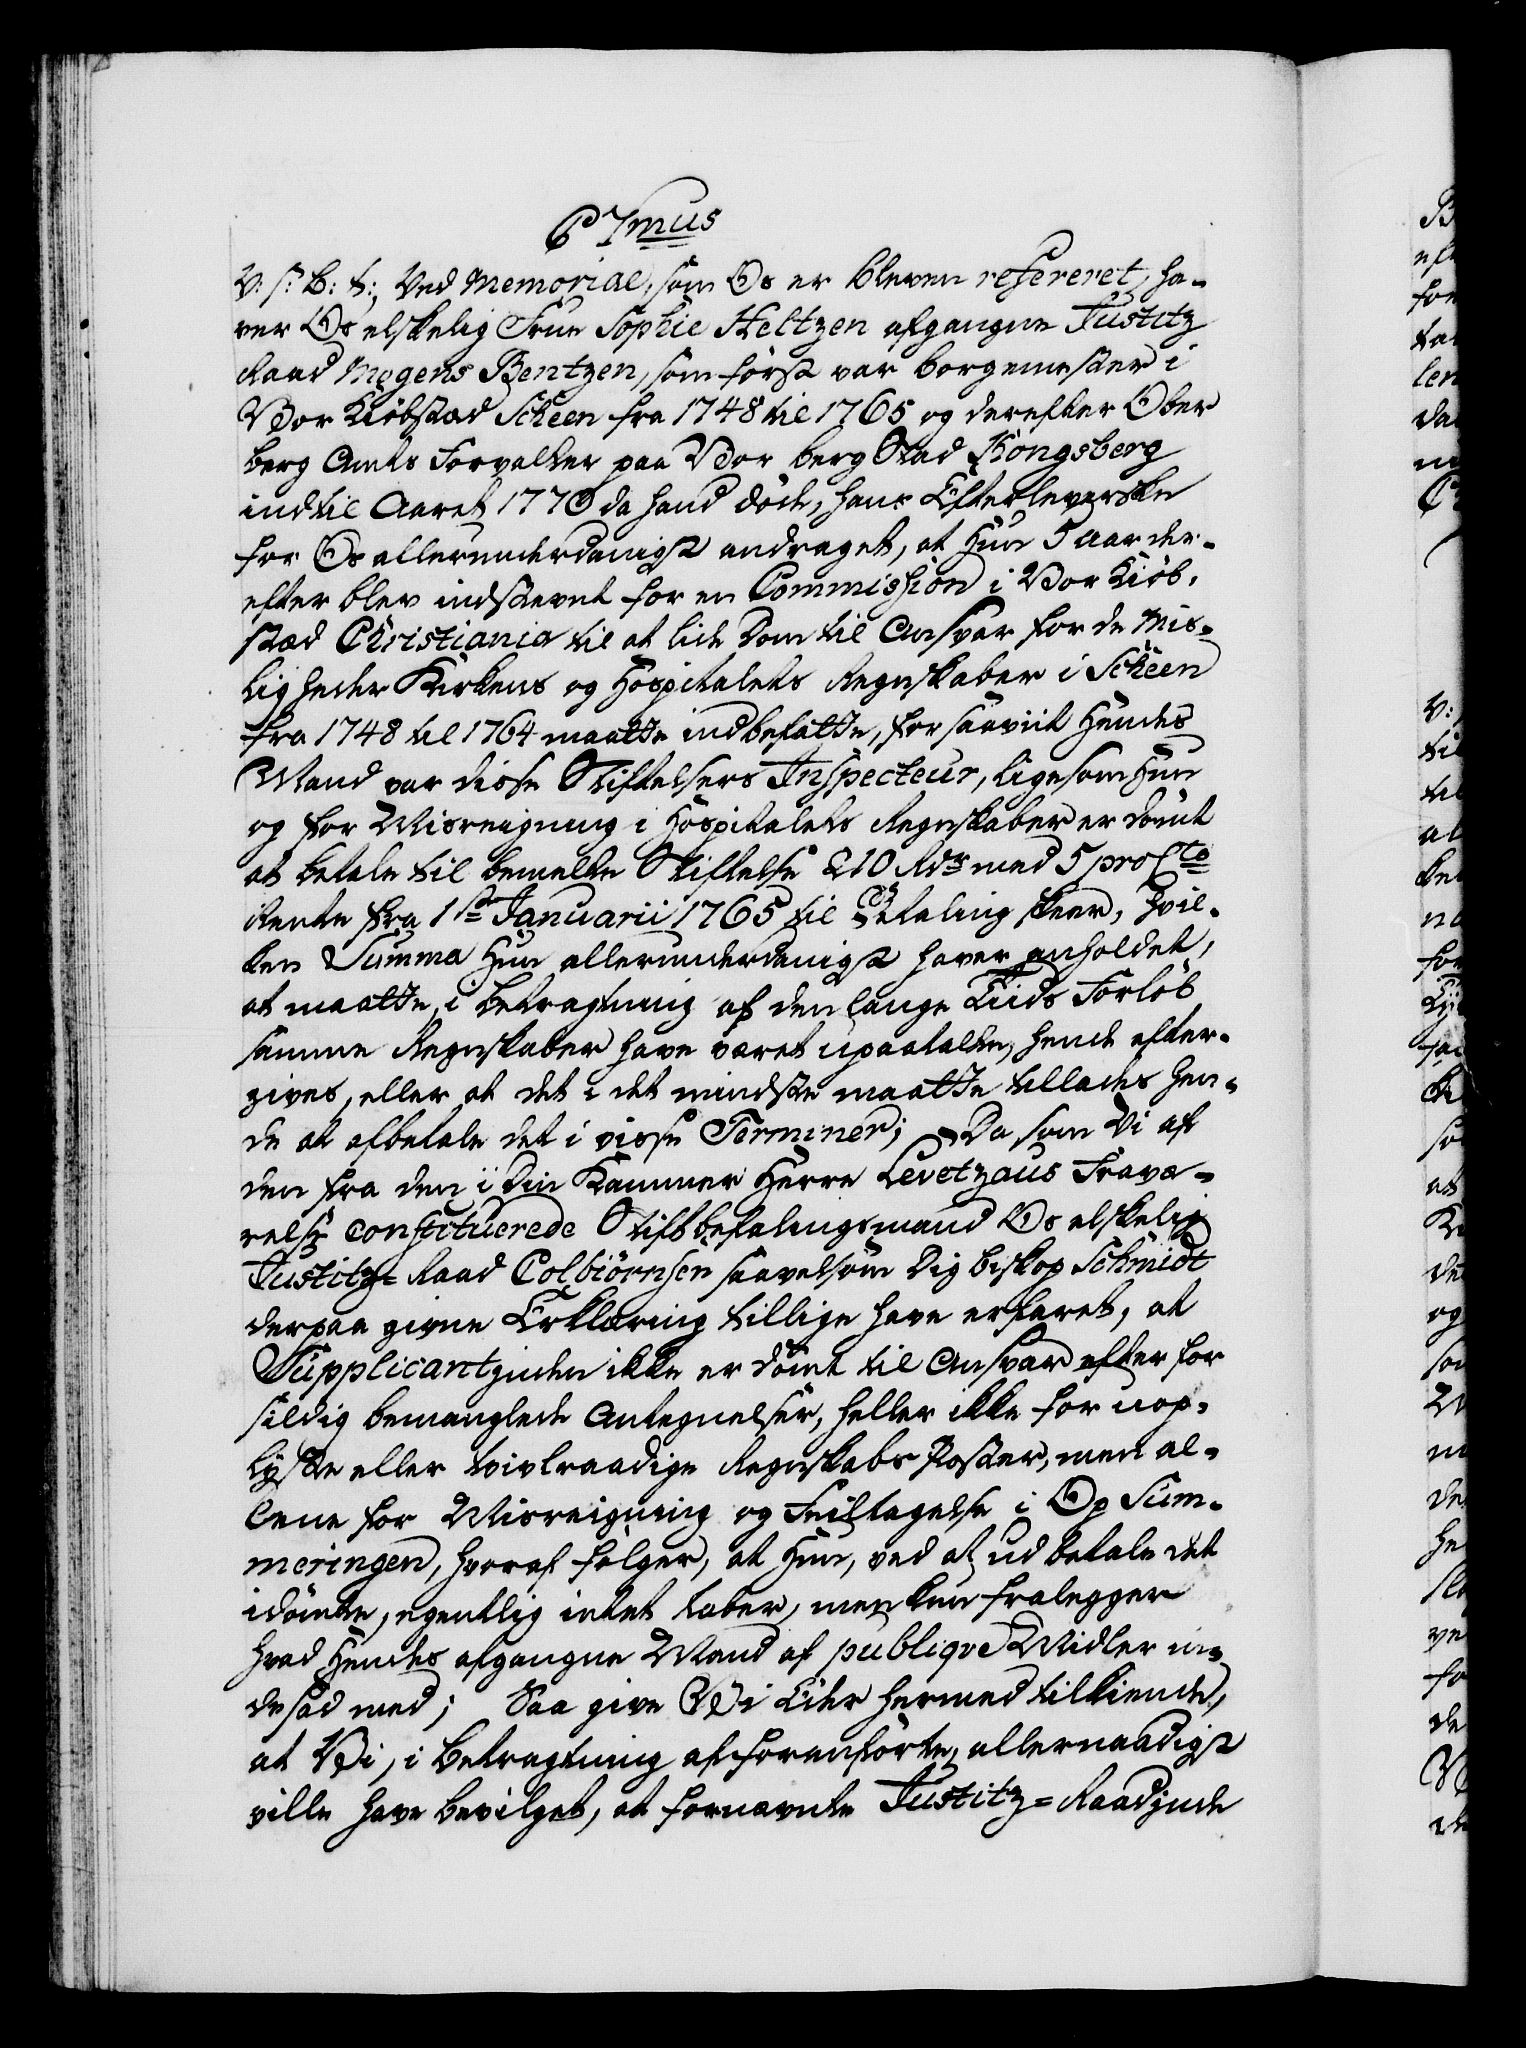 C Imus
V: s: B: t:, Ved Memorial, som Os er bleven refereret, ha-
ver Os elskelig Frue Sophie Heltzen afgangne Justitz
Raad Mogens Bentzen, som først var borgemester i
Vor Kiøbstæd Scheen fra 1748 til 1765 og derefter Ober
berg Amts Forvalter paa Vor berg Stad Kongsberg
indtil Aaret 1770 da hand døde, hans Efterleverske
for Os allerunderdanigst andraget, at Hun 5 aar der-
efter blev indstevnt for en Commission i Vor Kiøb-
stæd Christiania til at lide Dom til Ansvar for de Mis-
ligheder Kirkens og Hospitalets Regnskaber i Scheen
fra 1748 til 1764 maatte indbefatte, for saaviit Hendes
Mand var disse Stiftelsers Inspecteur, ligesom Hun
og for Misreigning i Hospitalets Regnskaber er dømt
at betale til bemelte Stiftelse 210 Rdr med 5 pro Cto
Rente fra 1ste Januarii 1765 til Betaling skeer, hvil-
ken Summa Hun allerunderdanigst haver anholdet,
at maatte, i betragtning af den lange Tiids Forløb
samme Regnskaber have været upaatalte, hende efter-
gives, eller at det i det mindste maatte tillades hen-
de at afbetale det i visse Terminer; Da som Vi af
den fra den i Din Kammer Herre Levetzaus Fravæ-
relse constituerede Stiftbefalingsmand Os elskelig
Justitz-Raad Colbiørnsen saavelsom Dig biskop Schmidt
derpaa givne Erklæring tillige have erfaret, at
Supplicantzinden ikke er dømt til Ansvar efter for
sildig bemanglede Antegnelser, heller ikke for uop-
lyste eller tvivlraadige Regnskabs Poster, men al-
lene for Misreigning og Feiltagelse i Op Sum-
meringen, hvoraf følger, at Hun, ved at udbetale det
idømte, egentlig intet taber, men kun fralegger
hvad Hendes afgangne Mand af publiqve Midler in-
desad med; Saa give Vi Eder hermed tilkiende,
at Vi, i betragtning af foranførte, allernaadigst
ville have bevilget, at fornævnte Justitz-Raadinde